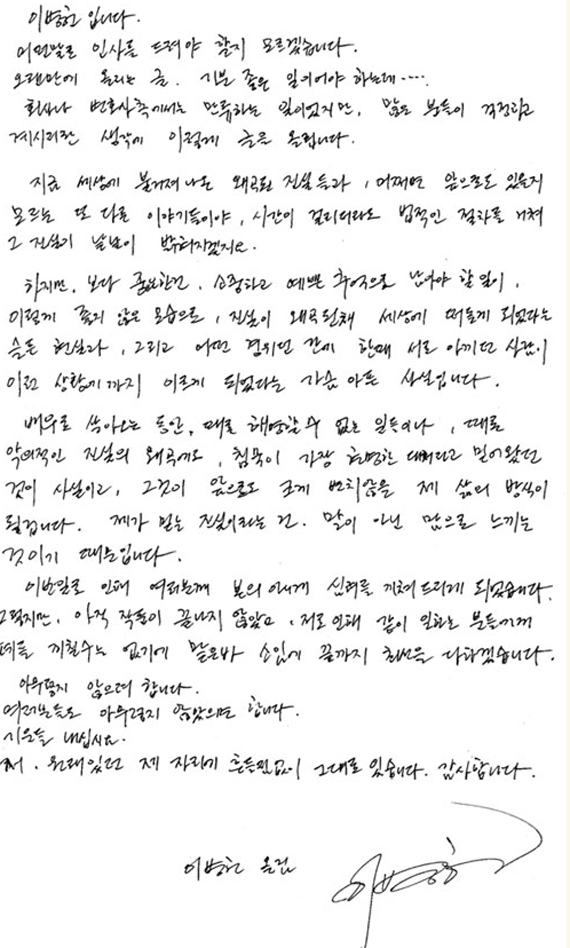 이병헌 입니다.
어떤말로 인사를 드려야 할지 모르겠습니다.
오랜만에 올리는 글. 기분 좋은 일이어야 하는데....
회사나 변호사측에서는 만류하는 일이었지만, 많은 분들이 걱정하고
계시리란 생각에 이렇게 글을 올립니다.
지금 세상에 불거져 나온 왜곡된 진실들과, 어쩌면 앞으로도 있을지
모르는 또 다른 이야기들이야, 시간이 걸리더라도 법적인 절차를 거쳐
그 진실이 낱낱이 밝혀지겠지요.
하지만, 보다 중요한건, 소중하고 예쁜 추억으로 남아야 할 일이,
이렇게 좋지 않은 모습으로, 진실이 왜곡된채 세상에 떠돌게 되었다는
슬픈 현실과, 그리고 어떤 경위던 간에 한때 서로 아끼던 사람이
이런 상황에까지 이르게 되었다는 가슴 아픈 사실입니다.
배우로 살아오는 동안, 때로 해명할 수 없는 일들이나, 때로
악의적인 진실의 왜곡에도, 침묵이 가장 현명한 대처라고 믿어왔던
것이 사실이고, 그것이 앞으로도 크게 변치않을 제 삶의 방식이
될겁니다. 제가 믿는 진실이라는 건. 말이 아닌 맘으로 느끼는
것이기 때문입니다.
이번일로 인해 여러분께 본의 아니게 심려를 끼쳐 드리게 되었습니다.
그렇지만, 아직 작품이 끝나지 않았고, 저로 인해 같이 일하는 분들에게
폐를 끼칠수는 없기에 맡은바 소임에 끝까지 최선을 다하겠습니다.
아무렇지 않으려 합니다.
여러분들도 아무렇지 않았으면 합니다.
기운들 내십시요.
저. 원래있던 제 자리에 흔들림없이 그대로 있습니다. 감사합니다.
이병헌 올림